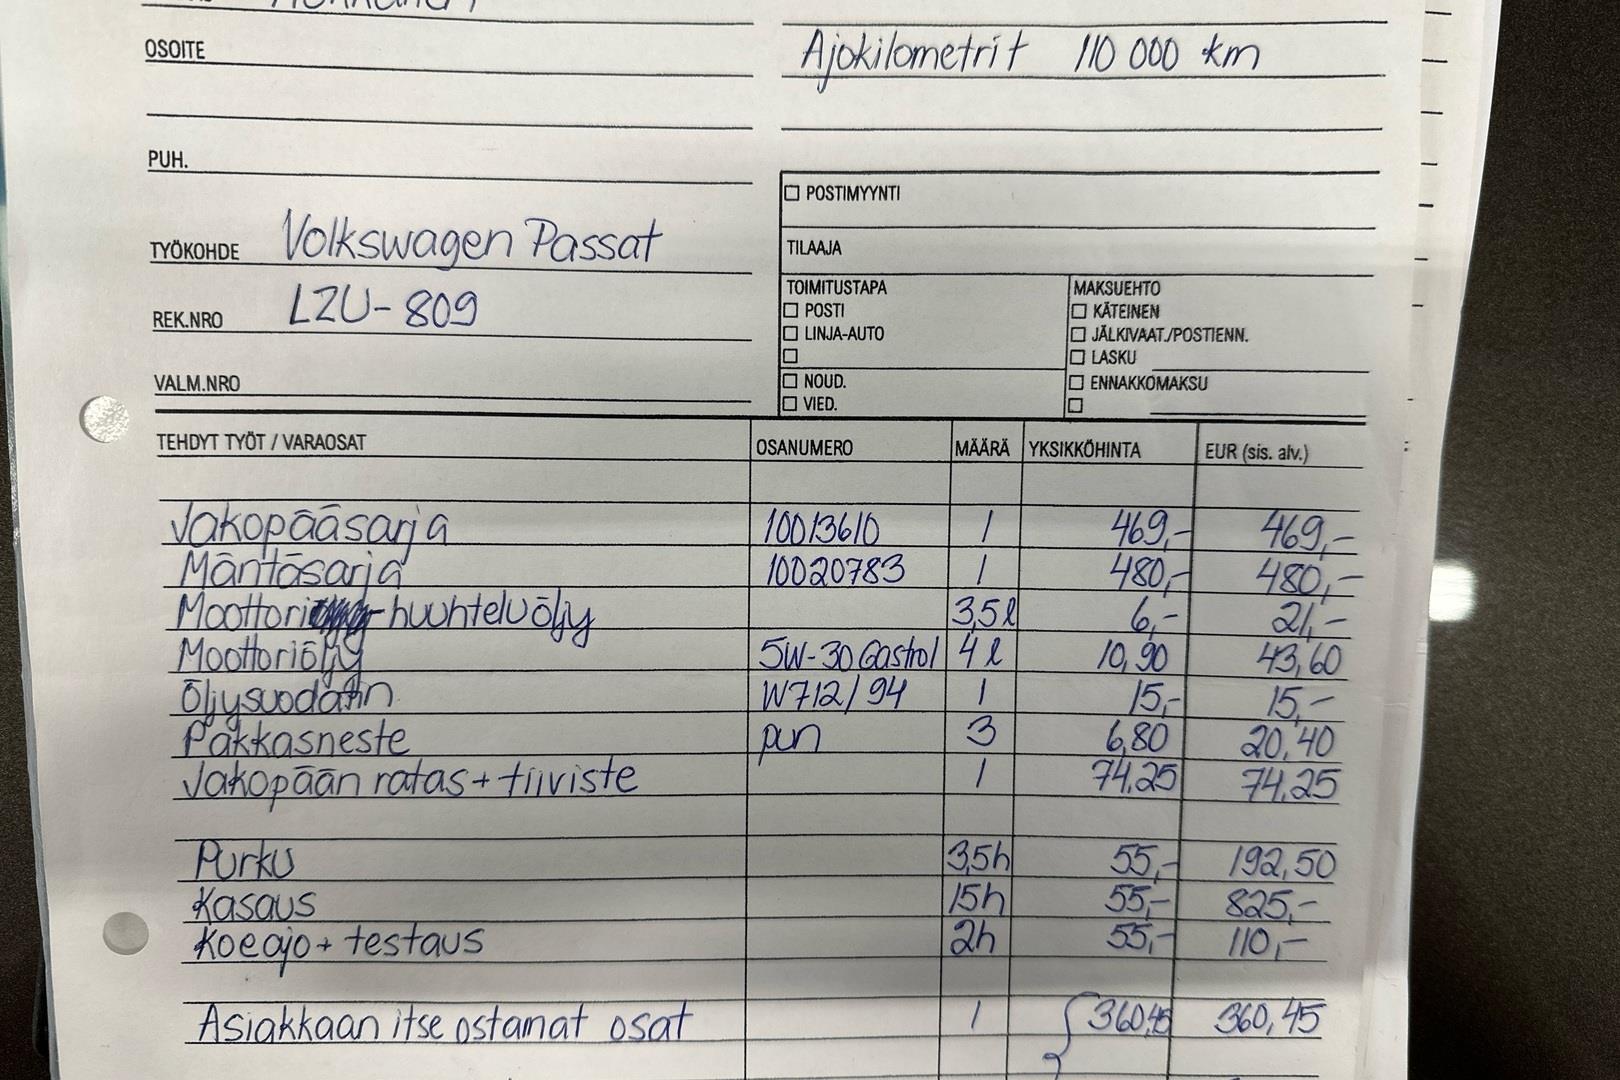 OSOITE
Ajokilometrit 110 000 km
PUH.
☐ POSTIMYYNTI
TILAAJA
TYÖKOHDE Volkswagen Passat
TOIMITUSTAPA MAKSUEHTO
☐ POSTI ☐ KÄTEINEN
REK.NRO LZU-809
☐ LINJA-AUTO ☐ JÄLKIVAAT./POSTIENN.
☐ ☐ LASKU
VALM.NRO
☐ NOUD. ☐ ENNAKKOMAKSU
☐ VIED. ☐
TEHDYT TYÖT / VARAOSAT OSANUMERO MÄÄRÄ YKSIKKÖHINTA EUR (sis. alv.)
Jakopääsarja 10013610 1 469,- 469,-
Mäntäsarja 10020783 1 480,- 480,-
Moottori-huuhteluöljy 3,5 l 6,- 21,-
Moottoriöljy 5W-30 Castrol 4 l 10,90 43,60
Öljysuodatin W712/94 1 15,- 15,-
Pakkasneste pun 3 6,80 20,40
Jakopään ratas + tiiviste 1 74,25 74,25
Purku 3,5h 55,- 192,50
Kasaus 15h 55,- 825,-
Koeajo + testaus 2h 55,- 110,-
Asiakkaan itse ostamat osat 1 360,45 360,45